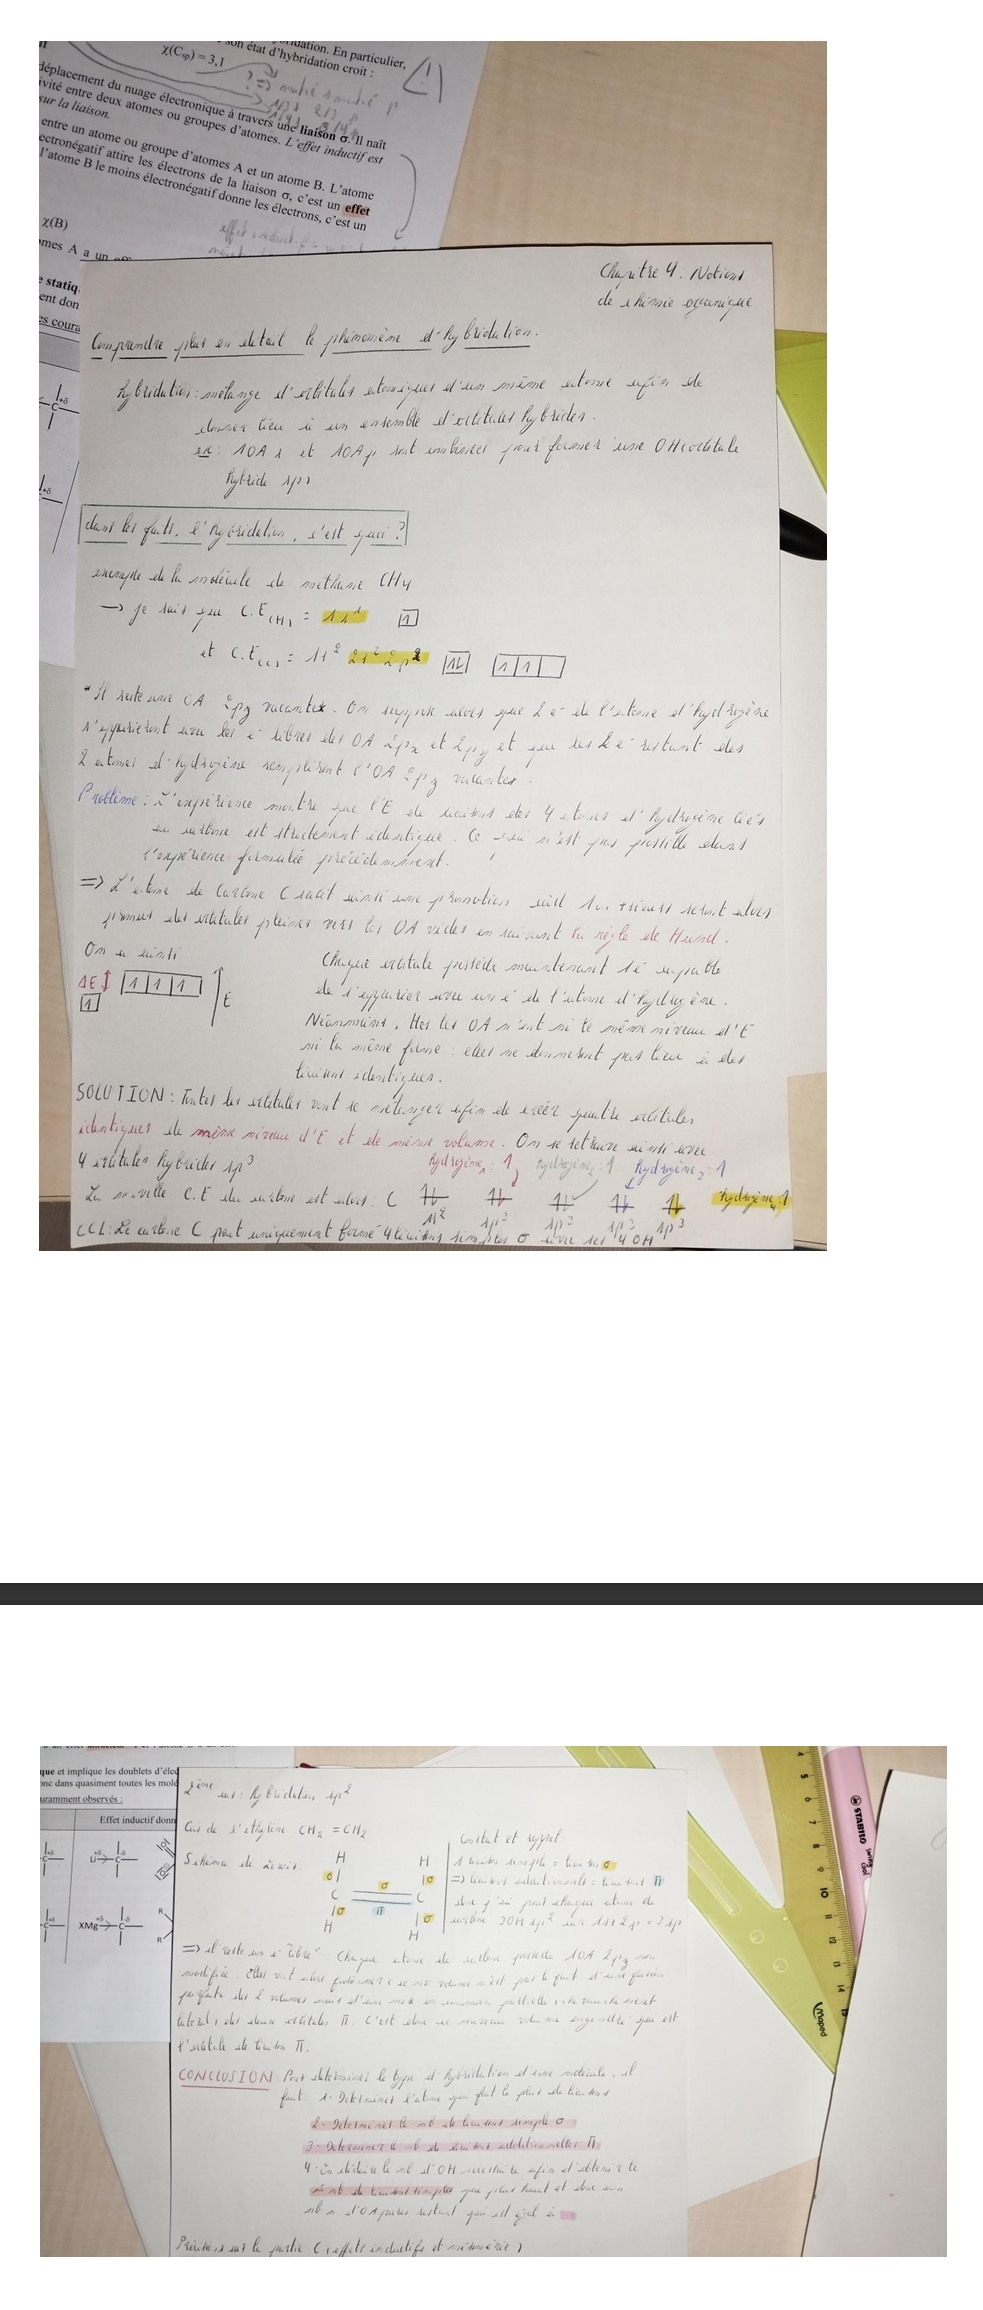 son état d'hybridation. En particulier,
χ(Csp) = 3,1
d'hybridation croit :
déplacement du nuage électronique à travers une liaison σ. Il naît
ivité entre deux atomes ou groupes d'atomes. L'effet inductif est
sur la liaison.
entre un atome ou groupe d'atomes A et un atome B. L'atome
ectronégatif attire les électrons de la liaison σ, c'est un effet
l'atome B le moins électronégatif donne les électrons, c'est un
χ(B)
omes A a un
e statiq
ent don
es coura
Chapitre 4 : Notions
de chimie organique
Comprendre plus en détail le phénomène d'hybridation.
hybridation : mélange d'orbitales atomiques d'un même atome afin de
donner lieu à un ensemble d'orbitales hybrides.
ex : 1 OA s et 1 OA p sont combinées pour former une OH (orbitale
hybride sp)
dans les faits, l'hybridation, c'est quoi ?
exemple de la molécule de méthane CH4
→ je sais que C.E(H) = 1s¹
et C.E(C) = 1s² 2s² 2p²
* Il reste une OA 2pz vacante. On suppose alors que 2 e⁻ de l'atome d'hydrogène
s'apparieront avec les e⁻ libres des OA 2px et 2py et que les 2 e⁻ restant des
2 atomes d'hydrogène rempliront l'OA 2pz vacante.
Problème : L'expérience montre que l'E de liaison des 4 atomes d'hydrogène liés
au carbone est strictement identique. Ce qui n'est pas possible dans
l'expérience formulée précédemment.
=> L'atome de Carbone C subit ainsi une promotion soit 1 ou +sieurs seront alors
promus des orbitales pleines vers les OA vides en suivant la règle de Hund.
On a ainsi
ΔE
E
Chaque orbitale possède maintenant 1 e⁻ capable
de s'apparier avec un e⁻ de l'atome d'hydrogène.
Néanmoins, les OA n'ont ni le même niveau d'E
ni la même forme : elles ne donneront pas lieu à des
liaisons identiques.
SOLUTION : Toutes les orbitales vont se mélanger afin de créer quatre orbitales
identiques de même niveau d'E et de même volume. On se retrouve ainsi avec
4 orbitales hybrides sp³
hydrogène₁ : 1 hydrogène₂ : 1 hydrogène₃ : 1
La nouvelle C.E du carbone est alors : C hydrogène₄ 1
1s² sp³ sp³ sp³ sp³
CCL : Le carbone C peut uniquement former 4 liaisons simples σ avec ses 4 OH
que et implique les doublets d'élec
onc dans quasiment toutes les molé
uramment observés :
Effet inductif donn
Li
XMg
2ème cas : hybridation sp²
Cas de l'éthylène CH2 = CH2
Schéma de Lewis :
H H
σ σ σ
C C
σ π σ
H H
Constat et rappel :
1 liaison simple = liaison σ
=> liaison additionnelle = liaison π
donc j'ai pour chaque atome de
carbone 3 OH sp² car 1s + 2p = 3 sp
=> il reste un e⁻ "libre" : Chaque atome de carbone possède 1 OA 2pz non
modifiée. Elles vont alors fusionner : ce volume n'est pas le fruit d'une fusion
parfaite des 2 volumes mais d'une mise en commun partielle (
latéral) des deux orbitales π. C'est donc ce nouveau volume engendré qui est
l'orbitale de liaison π.
CONCLUSION : Pour déterminer le type d'hybridation d'une molécule, il
faut : 1- Déterminer l'atome qui fait le plus de liaisons
2- Déterminer le nb de liaisons simple σ
3- Déterminer le nb de liaisons additionnelles π
4- En déduire le nb d'OH nécessaire afin d'obtenir le
m nb de liaisons simples que plus haut et donc un
nb n d'OA pures restant qui est égal à
Précisions sur la partie C (effets inductifs et mésomérie)
STABILO
swing cool
Maped
4
5
6
7
8
9
10
11
12
13
14